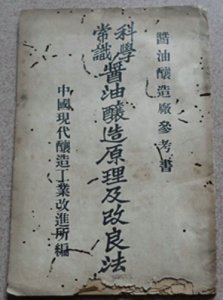 醬油釀造廠參考書
科學常識
醬油釀造原理及改良法
中國現代釀造工業改進所編